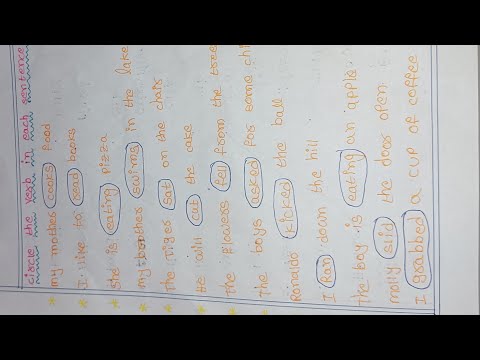 circle the verb in each sentence
my mother cooks food
I like to read books
She is eating pizza
my brother swims in the lake
The Tiger sat on the chair
He will cut the case
the flowers fell from the tree
The boys asked for some chi
Ronaldo kicked the ball
I Ran down the hill
The boy is eating an apple
molly slid the door open
I grabbed a cup of coffee